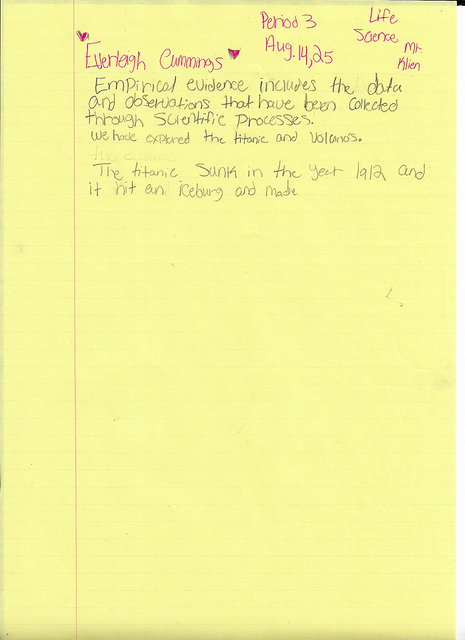 Period 3
Life
Science
Aug. 14, 25
Mr.
Klien
Everleigh Cummings
Empirical evidence includes the data
and observations that have been collected
through Scientific Processes.
we have explored the titanic and volcano's.
The titanic sunk in the year 1912 and
it hit an iceburg and made